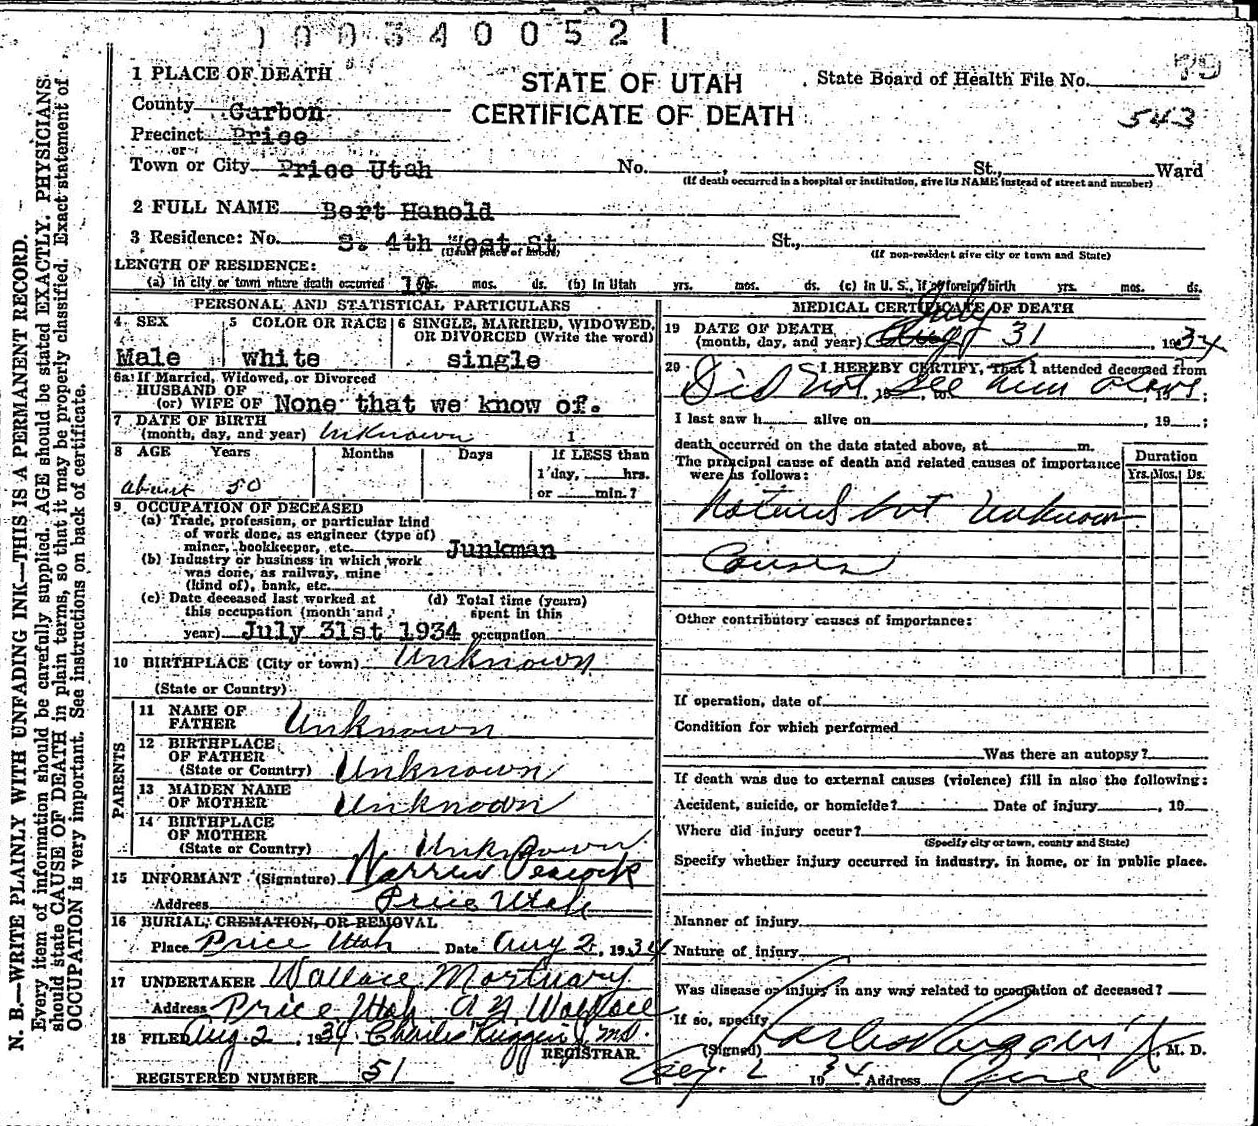 1003400521
1 PLACE OF DEATH
STATE OF UTAH
CERTIFICATE OF DEATH
State Board of Health File No. 79
543
County Carbon
Precinct Price
or
Town or City Price Utah No. St., Ward
(If death occurred in a hospital or institution, give its NAME instead of street and number)
2 FULL NAME Bert Hanold
3 Residence: No. S. 4th West St St.,
(Usual place of abode) (If non-resident give city or town and State)
LENGTH OF RESIDENCE:
(a) In city or town where death occurred 10 yrs. mos. ds. (b) In Utah yrs. mos. ds. (c) In U. S., if of foreign birth yrs. mos. ds.
PERSONAL AND STATISTICAL PARTICULARS
4 SEX
Male
5 COLOR OR RACE
white
6 SINGLE, MARRIED, WIDOWED, OR DIVORCED (Write the word)
single
6a If Married, Widowed, or Divorced
HUSBAND OF
(or) WIFE OF None that we know of.
7 DATE OF BIRTH
(month, day, and year) Unknown 1
8 AGE Years Months Days If LESS than
1 day, hrs.
about 50 or min.?
9 OCCUPATION OF DECEASED
(a) Trade, profession, or particular kind
of work done, as engineer (type of)
miner, bookkeeper, etc. Junkman
(b) Industry or business in which work
was done, as railway, mine
(kind of), bank, etc.
(c) Date deceased last worked at
this occupation (month and
year) July 31st 1934
(d) Total time (years)
spent in this
occupation
10 BIRTHPLACE (City or town) Unknown
(State or Country)
PARENTS
11 NAME OF
FATHER Unknown
12 BIRTHPLACE
OF FATHER
(State or Country) Unknown
13 MAIDEN NAME
OF MOTHER Unknown
14 BIRTHPLACE
OF MOTHER
(State or Country) Unknown
15 INFORMANT (Signature) Warren Peacock
Address Price Utah
16 BURIAL, CREMATION, OR REMOVAL
Place Price Utah Date Aug 2, 1934
17 UNDERTAKER Wallace Mortuary
Address Price Utah A N Wallace
18 FILED Aug. 2, 1934 Charles Ruggeri MD.
REGISTRAR.
REGISTERED NUMBER 51
MEDICAL CERTIFICATE OF DEATH
19 DATE OF DEATH
(month, day, and year) Aug July 31, 1934
20 I HEREBY CERTIFY, That I attended deceased from
Did not see him alive, 19;
I last saw h alive on, 19;
death occurred on the date stated above, at m.
The principal cause of death and related causes of importance
were as follows:
Duration
Yrs. Mos. Ds.
Natural but Unknown
Causes
Other contributory causes of importance:
If operation, date of
Condition for which performed
Was there an autopsy?
If death was due to external causes (violence) fill in also the following:
Accident, suicide, or homicide? Date of injury, 19
Where did injury occur?
(Specify city or town, county and State)
Specify whether injury occurred in industry, in home, or in public place.
Manner of injury
Nature of injury
Was disease or injury in any way related to occupation of deceased?
If so, specify
(Signed) Charles Ruggeri Jr, M. D.
Aug. 2 1934 Address Price
N. B.—WRITE PLAINLY WITH UNFADING INK—THIS IS A PERMANENT RECORD.
Every item of information should be carefully supplied. AGE should be stated EXACTLY. PHYSICIANS
should state CAUSE OF DEATH in plain terms, so that it may be properly classified. Exact statement of
OCCUPATION is very important. See instructions on back of certificate.